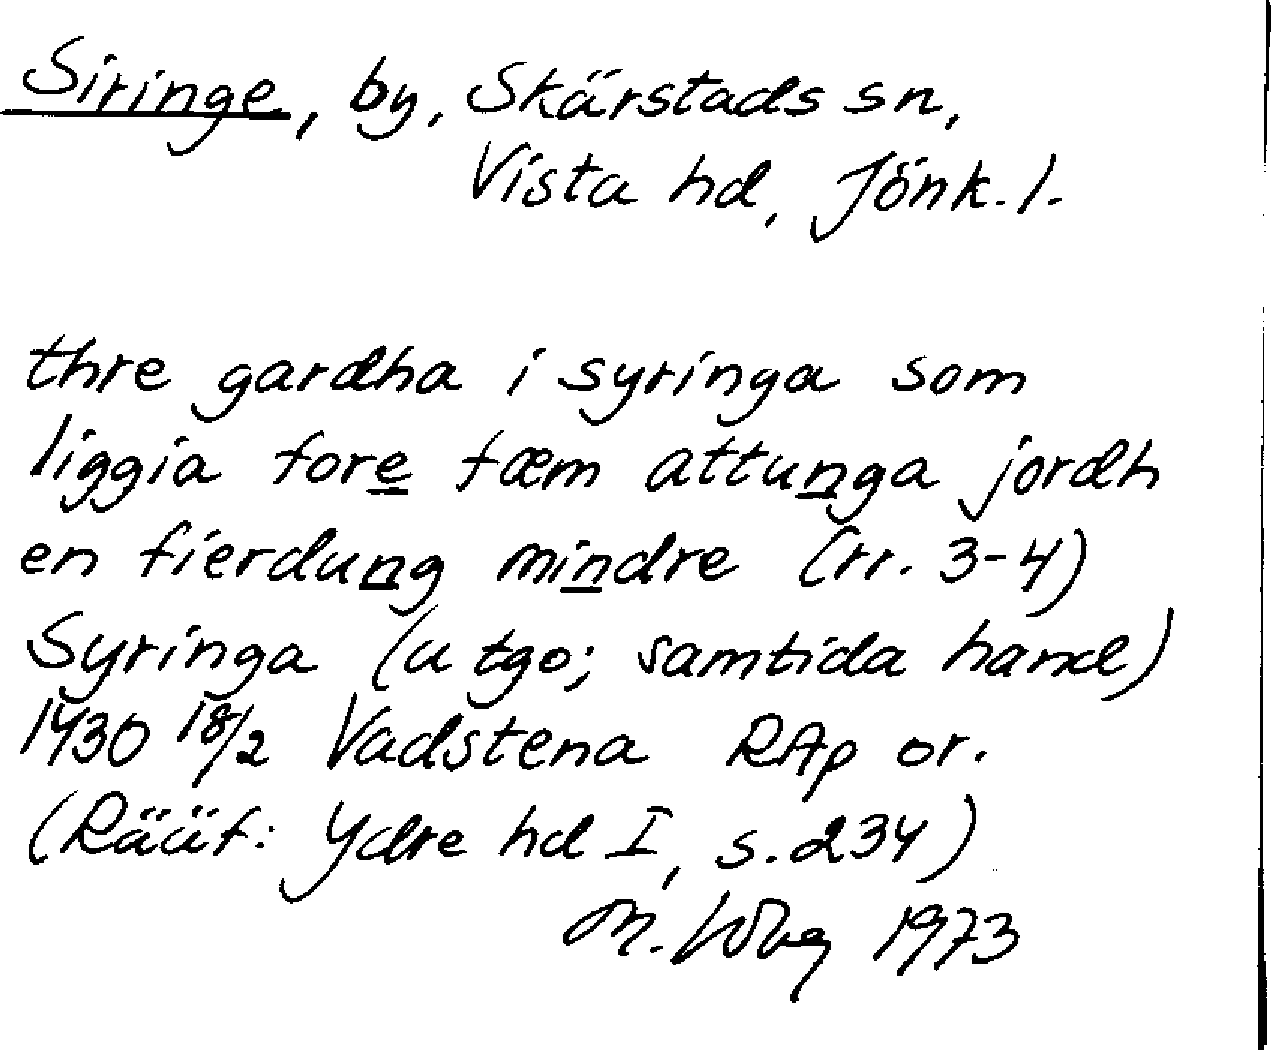 Siringe, by, Skärstads sn,
Vista hd, Jönk. l.
thre gardha i syringa som
liggia fore fæm attunga jordh
en fierdung mindre (rr. 3-4)
Syringa (a tgo; samtida hand)
1430 18/2 Vadstena RAp or.
(Rääf: Ydre hd I, s. 234)
M. 1973